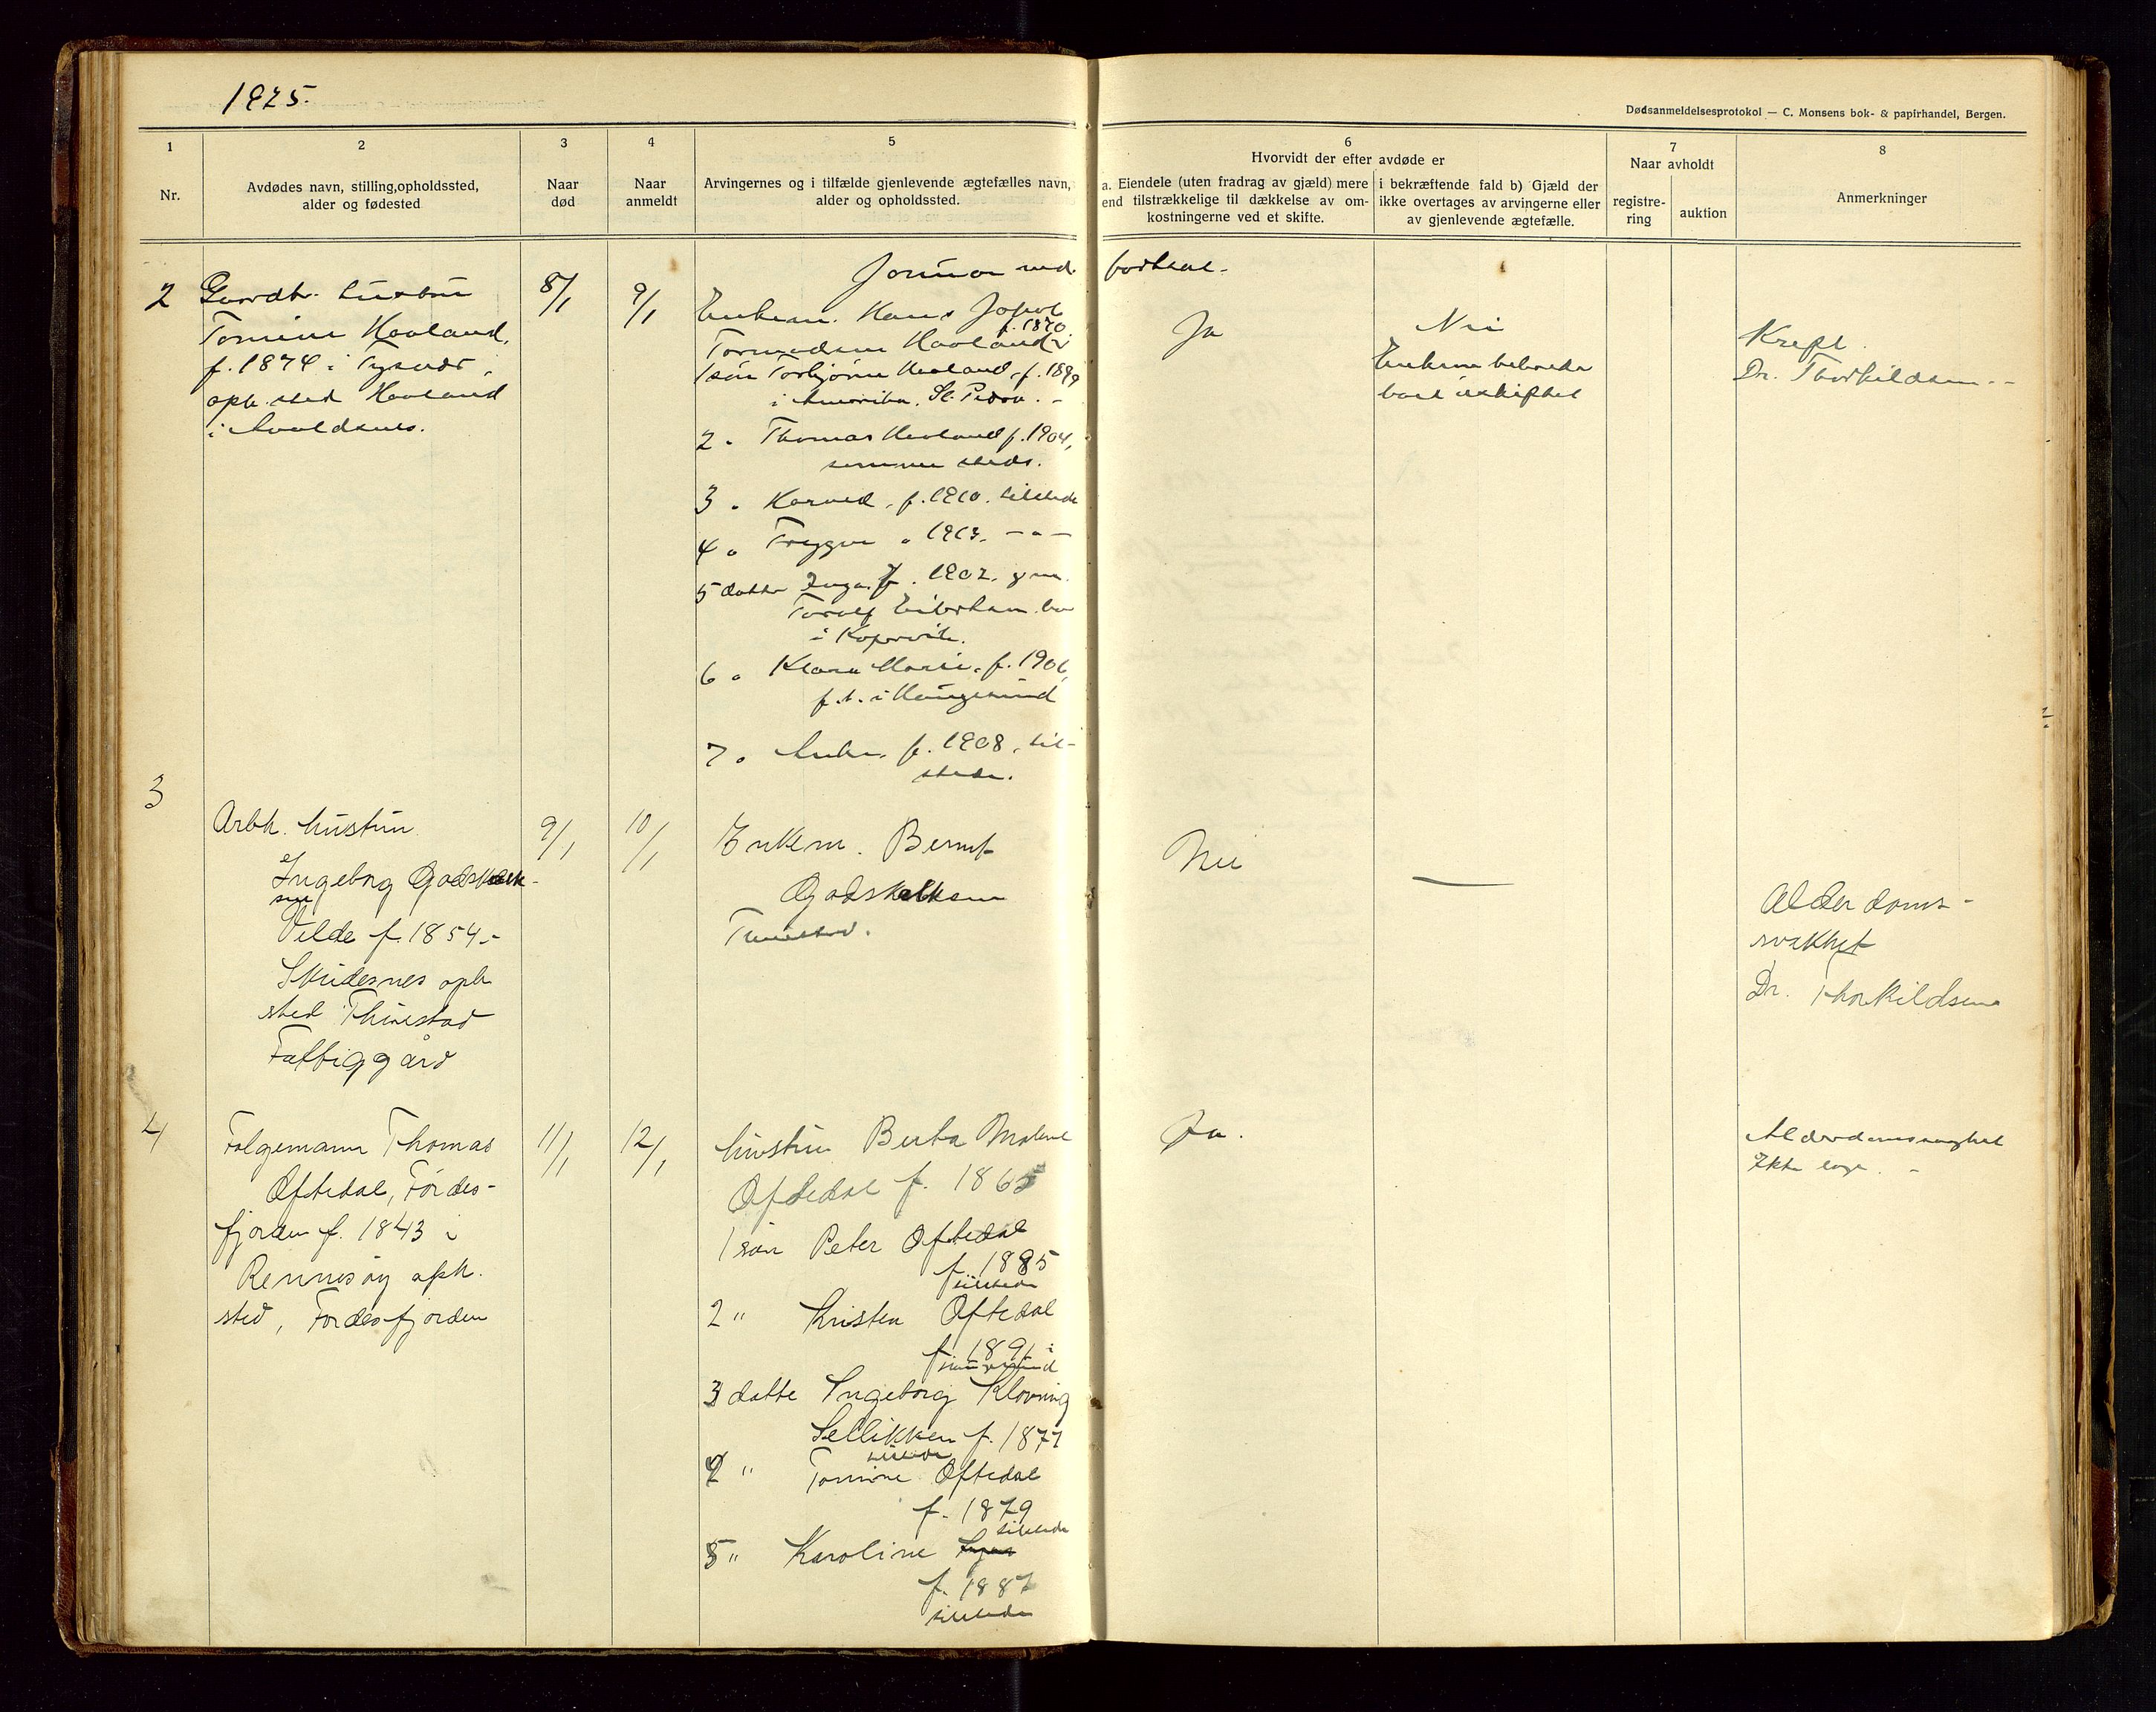 1925.
Dødsanmeldelsesprotokol — C. Monsens bok- & papirhandel, Bergen.
1
Nr.
2
Avdødes navn, stilling, opholdssted,
alder og fødested
3
Naar
død
4
Naar
anmeldt
5
Arvingernes og i tilfælde gjenlevende ægtefælles navn,
alder og opholdssted.
6
Hvorvidt der efter avdøde er
a. Eiendele (uten fradrag av gjæld) mere
end tilstrækkelige til dækkelse av om-
kostningerne ved et skifte.
i bekræftende fald b) Gjæld der
ikke overtages av arvingerne eller
av gjenlevende ægtefælle.
7
Naar avholdt
registre-
ring
auktion
8
Anmerkninger
2
Gardbr. hustru
Tomine Havland,
f. 1874 i Tysvær,
oph. sted Havland
i Avaldsnes.
8/1
9/1
Enkem. Hans Jakob
f. 1870
Tormodsen Havland
1 søn Torbjørn Havland, f. 1899
i Amerika, St. Pedro. -
2 " Thomas Havland f. 1904,
samme steds.
3 " Karned, f. 1910. tilstede
4 " Trygve " 1913. -"-
5 datter Inga f. 1902, gm.
i Kopervik.
6 " Klara Marie, f. 1906,
f.t. i Haugesund
7 " f. 1908, til-
stede.
Ja
Nei
Kreft.
Dr. Thorkildsen --
3
Arbk. hustru
Ingeborg Godskalk-
sen
Velde f. 1854.-
Skudesnes oph
sted Thuestad
Fattiggård
9/1
10/1
Enkem. Bernt
Godskalksen
Tuestad.
Nei
—
Alderdoms-
svakhet
Dr. Thorkildsen
4
Folgemann Thomas
Oftedal, Førdes-
fjorden f. 1843 i
Rennesøy oph.
sted, Førdesfjorden
11/1
12/1
hustru Berta Malene
Oftedal f. 1865
1 søn Peter Oftedal
f. 1885
tilstede
2 " Kristen Oftedal
f. 1891 i
3 datte Ingeborg Klovning
Sellikken f. 1877
tilstede
4 " Tomine Oftedal
f. 1879
tilstede
5 " Karoline
f. 1887
tilstede
Ja.
Alderdomssvaghet
Ikke læge. -